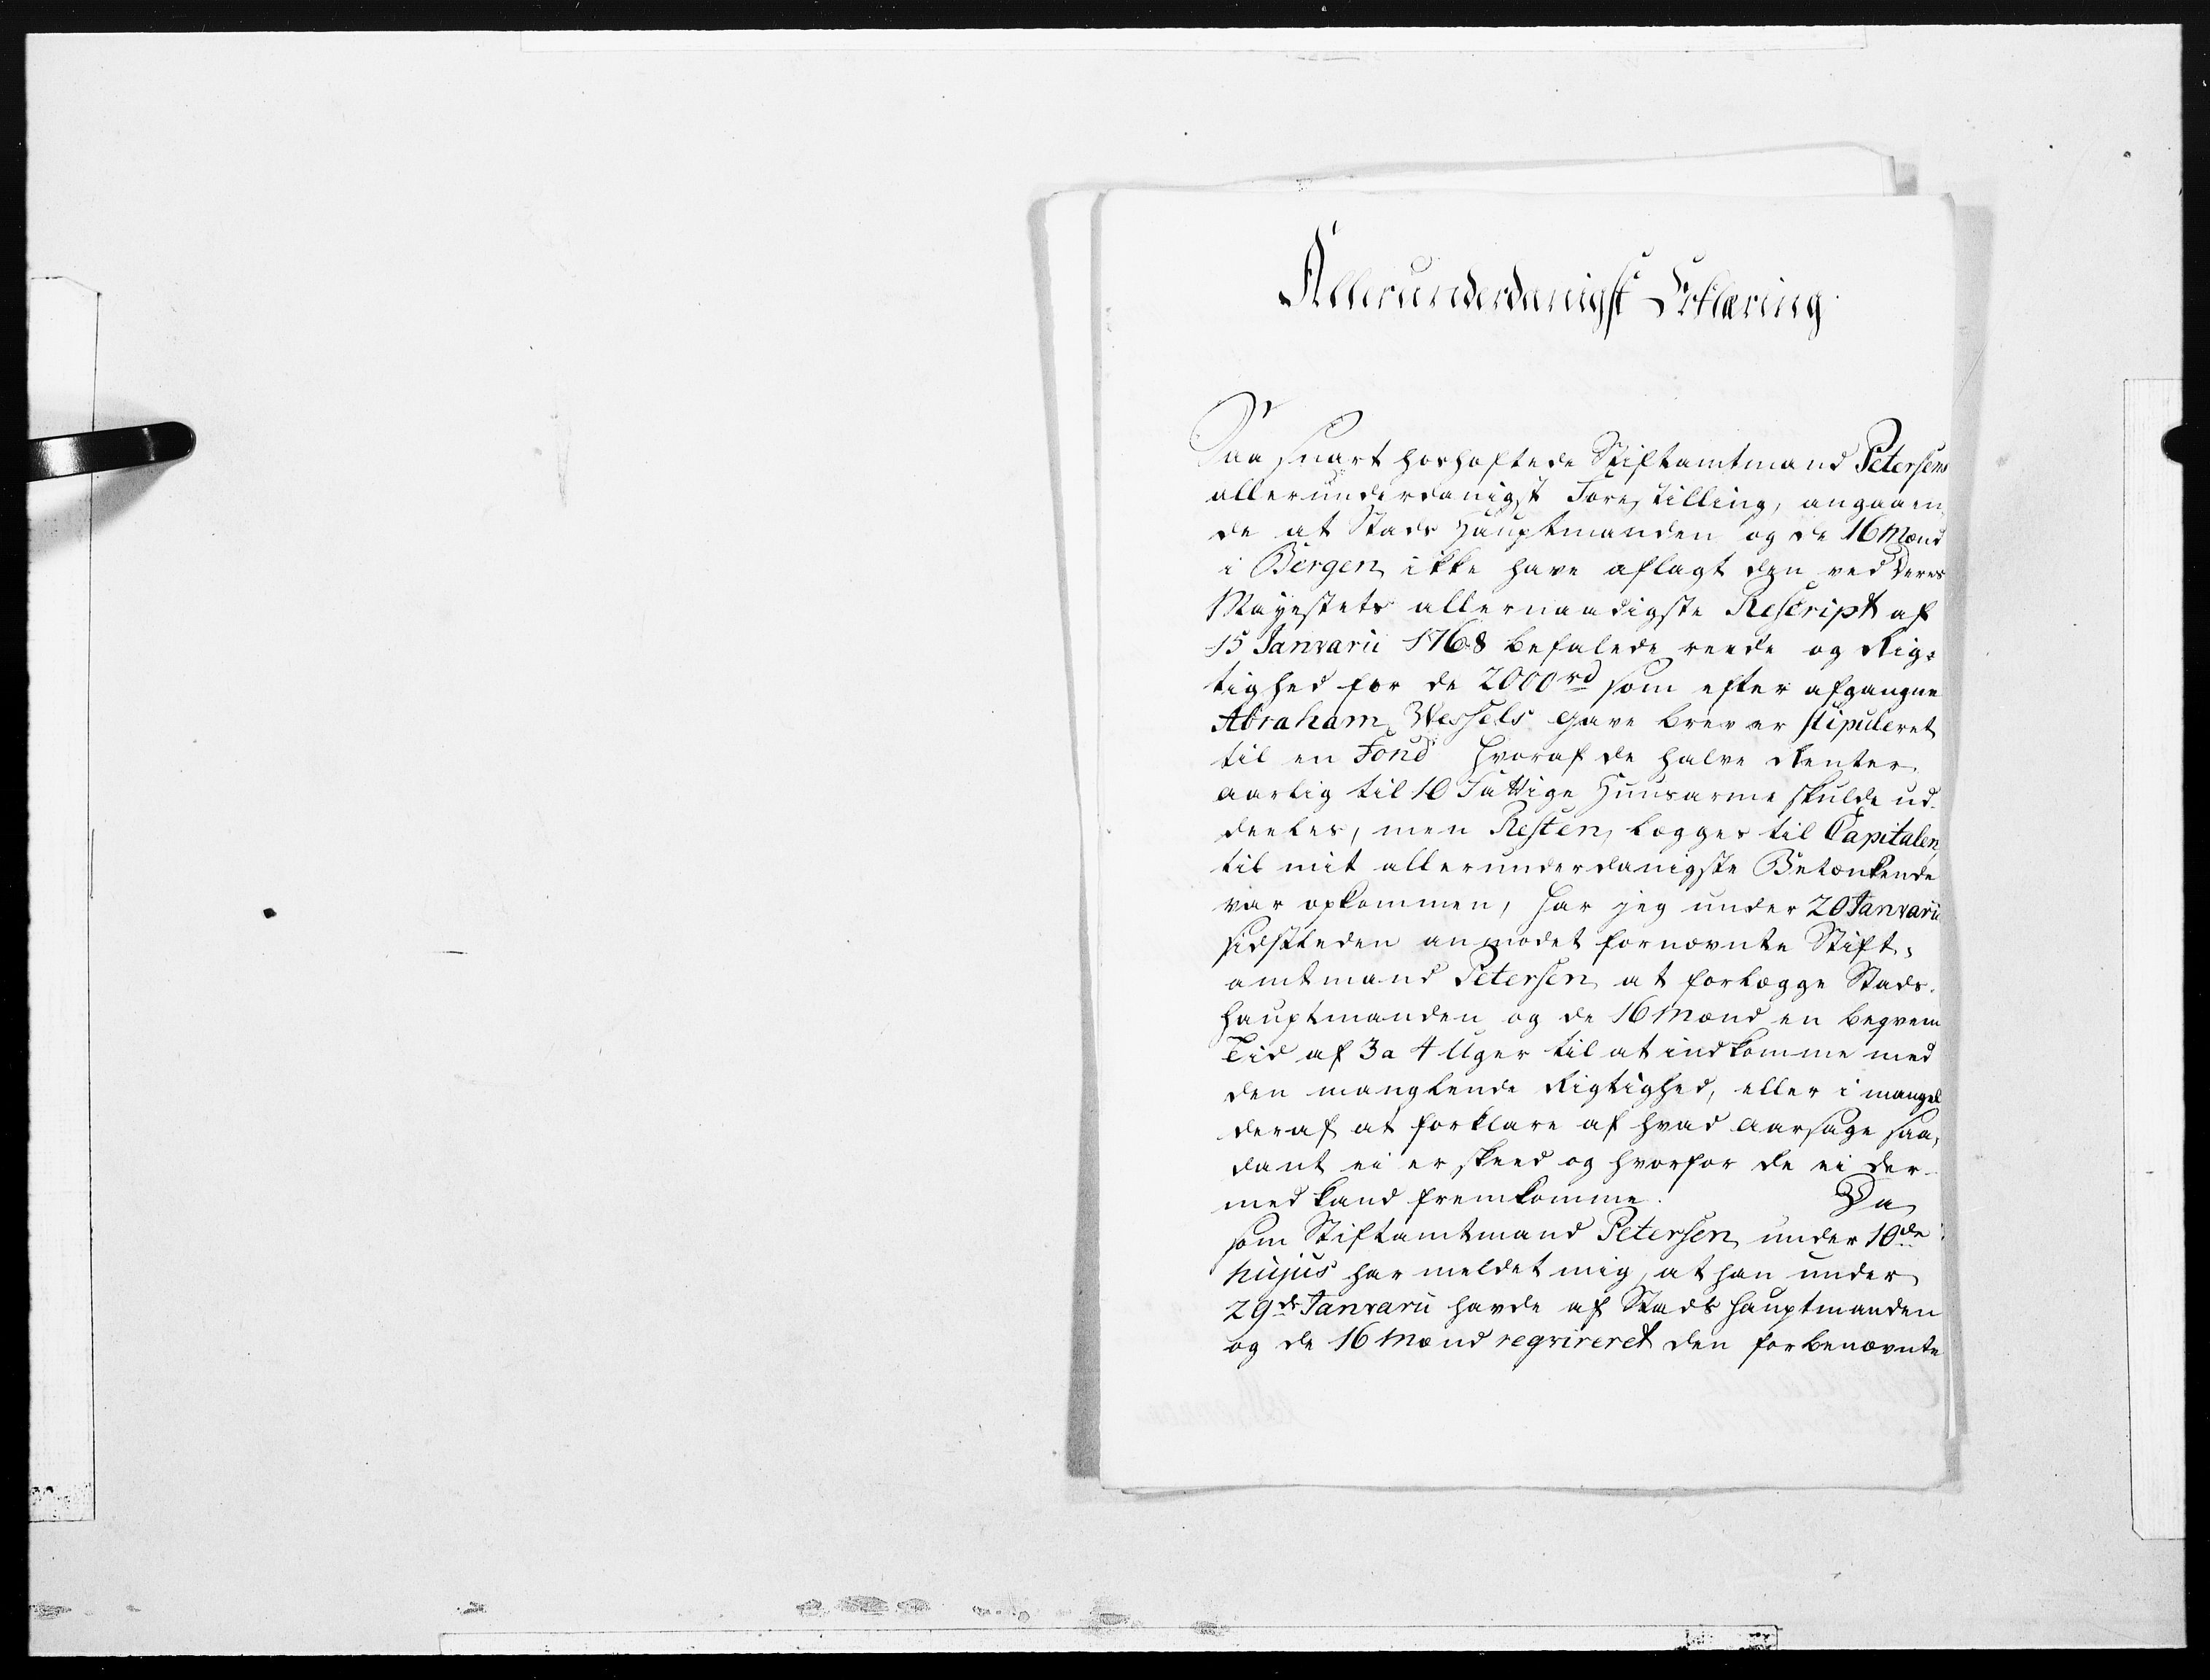 Allerunderdanigst Erklæring.
Saa snart hoshæftede Stiftamtmand Petersens
allerunderdanigst Forestilling, angaaen
de at Stads Hauptmanden og de 16 Mænd
i Bergen ikke have aflagt den ved Deres
Mayestets allernaadigste Rescript af
15 Janvarii 1768 befalede reede og Rig-
tighed for de 2000 rd som efter afgangne
Abraham Wessels Gave brev er stipuleret
til en Fond hvoraf de halve Renter
aarlig til 10 Fattige Huusarme skulde ud-
deeles, men Resten lægges til Capitalen,
til mit allerunderdanigste Betænkende
var opkommen, har jeg under 20 Janvarii
sidstleden anmodet fornævnte Stift-
amtmand Petersen at forlægge Stads-
hauptmanden og de 16 Mænd en beqvem
Tid af 3 a 4 Uger til at indkomme med
den manglende Rigtighed, eller i mangel
deraf at forklare af hvad aarsage saa-
dant ei er skeed og hvorfor de ei der-
med kand fremkomme. Da
som Stiftamtmand Petersen under 10de
hujus har meldet mig, at han under
29de Janvarii havde af Stads Hauptmanden
og de 16 Mænd reqvireret den forbenævnte